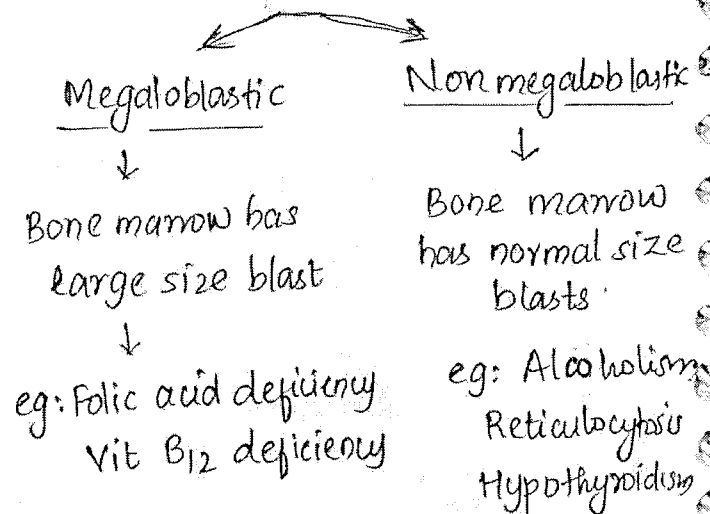 Megaloblastic
Bone marrow has
large size blast
eg: Folic acid deficiency
Vit B12 deficiency
Non megaloblastic
Bone marrow
has normal size
blasts.
eg: Alcoholism
Reticulocytosis
Hypothyroidism